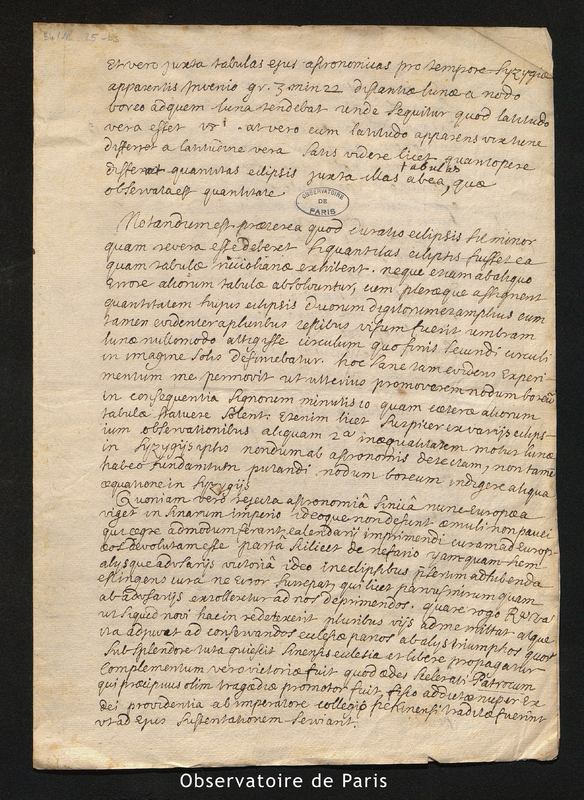 Et vero juxta tabulas ejus astronomicas pro tempore Syzygiæ
apparentis Invenio gr. 3 min 22 distantiæ lunæ a nodo
boreo ad quem luna tendebat unde sequitur quod latitudo
vera esset at vero cum latitudo apparens vix tunc
differret a latitudine vera satis videre licet quantopere
differat quantitas eclipsis juxta illas tabulas ab ea, quæ
observata est quantitate
OBSERVATOIRE DE PARIS
Notandum est præterea quod duratio eclipsis sit minor
quam revera esse deberet si quantitas eclipsis fuisset ea
quam tabulæ exhibent. neque etiam ab aliquo
Errore aliorum tabulæ absolvuntur, cum pleræque assignent
quantitatem hujus eclipsis duorum digitorum et amplius cum
tamen evidenter a pluribus testibus visum fuerit umbram
lunæ nullomodo attigisse circulum quo finis secundi circuli
in imagine solis definiebatur. hoc sane tam evidens Experi-
mentum me permovit ut ulterius promoverem nodum boreũ
in consequentia signorum minutis 10 quam cæteræ aliorum
tabulæ statuere solent. Etenim licet suspicer ex varijs eclips-
ium observationibus aliquam 2ᵃ inæqualitatem motus lunæ
in Syzygijs ipsis nondum ab astronomis detectam, non tamẽ
habeo fundamentum putandi nodum boreum indigere aliqua
æquatione in Syzygijs
Quoniam vero rejecta astronomiâ sinicâ nunc europæa
viget in sinarum imperio ideoque non desint æmuli non pauci
qui ægre admodum ferant calendarij imprimendi curam ad Europ-
æos devolutam esse partâ scilicet de nefario yam quam siem
alysque adversarijs victoriâ ideo in eclipsibus adhibenda
est ingens cura ne Error surrepat, qui licet parvus mirum quam
ab adversarijs extolleretur ad nos deprimendos. quare rogo
ut siquid novi hac in re detexerit pluribus vijs ad me mittat atque
ita adjuvat ad conservandos ecclesiæ partos ab alys triumphos quorũ
sub splendore tuta quiescit sinensis ecclesia et libere propagatur
Complementum vero victoriæ fuit quod ædes scelerati Patrocum
qui præcipuus olim tragædiæ promotor fuit, fisco addictæ nuper Ex
dei providentia ab imperatore collegio pekinensi traditæ fuerint
ut ad ejus sustentationem serviant.
Observatoire de Paris